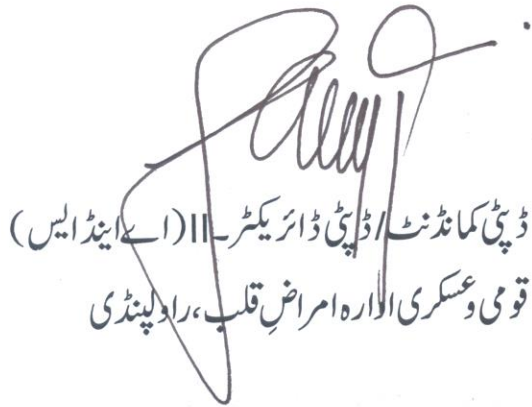 ڈپٹی کمانڈنٹ/ڈپٹی ڈائریکٹر۔II(اے اینڈ ایس)
قومی و عسکری ادارہ امراضِ قلب، راولپنڈی